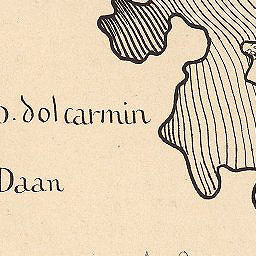 o. dol carmin
Daan